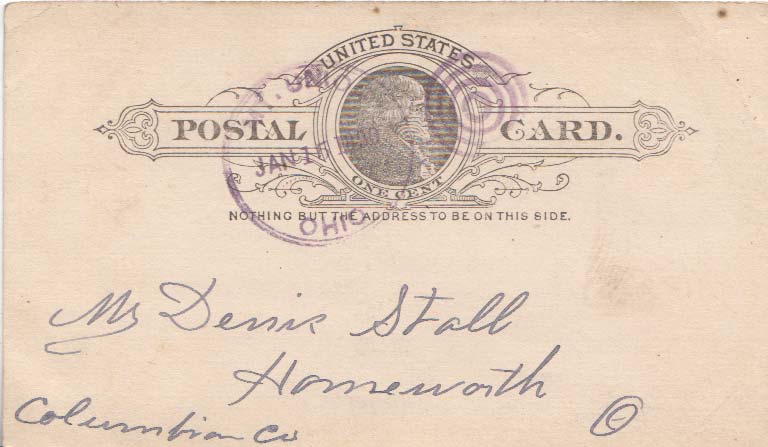 UNITED STATES
POSTAL CARD.
ONE CENT
NOTHING BUT THE ADDRESS TO BE ON THIS SIDE.
MT. UNION
JAN 15
OHIO
Mr Denis Stall
Homeworth
Columbian Co O